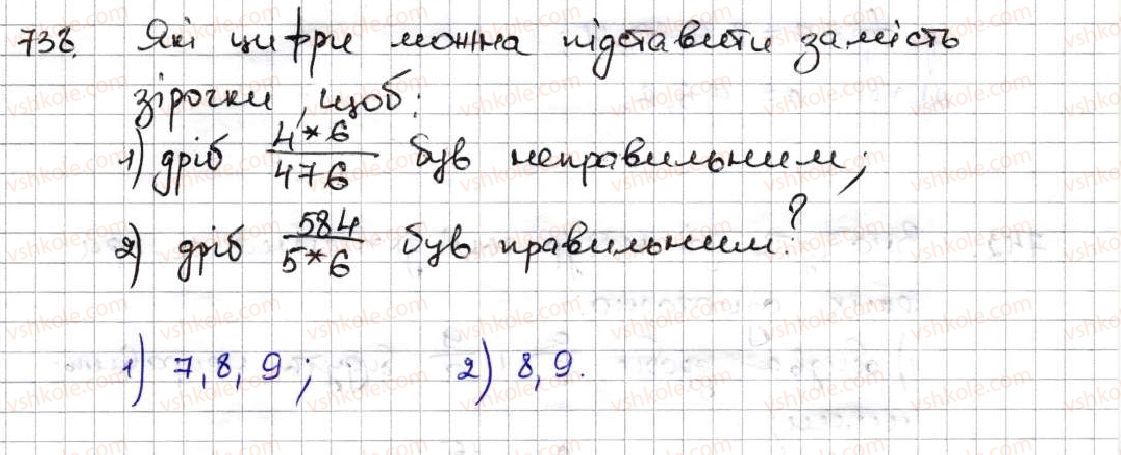 738. Які цифри можна підставити замість
зірочки, щоб:
1) дріб 4*6/476 був неправильним;
2) дріб 584/5*6 був правильним?
1) 7, 8, 9; 2) 8, 9.